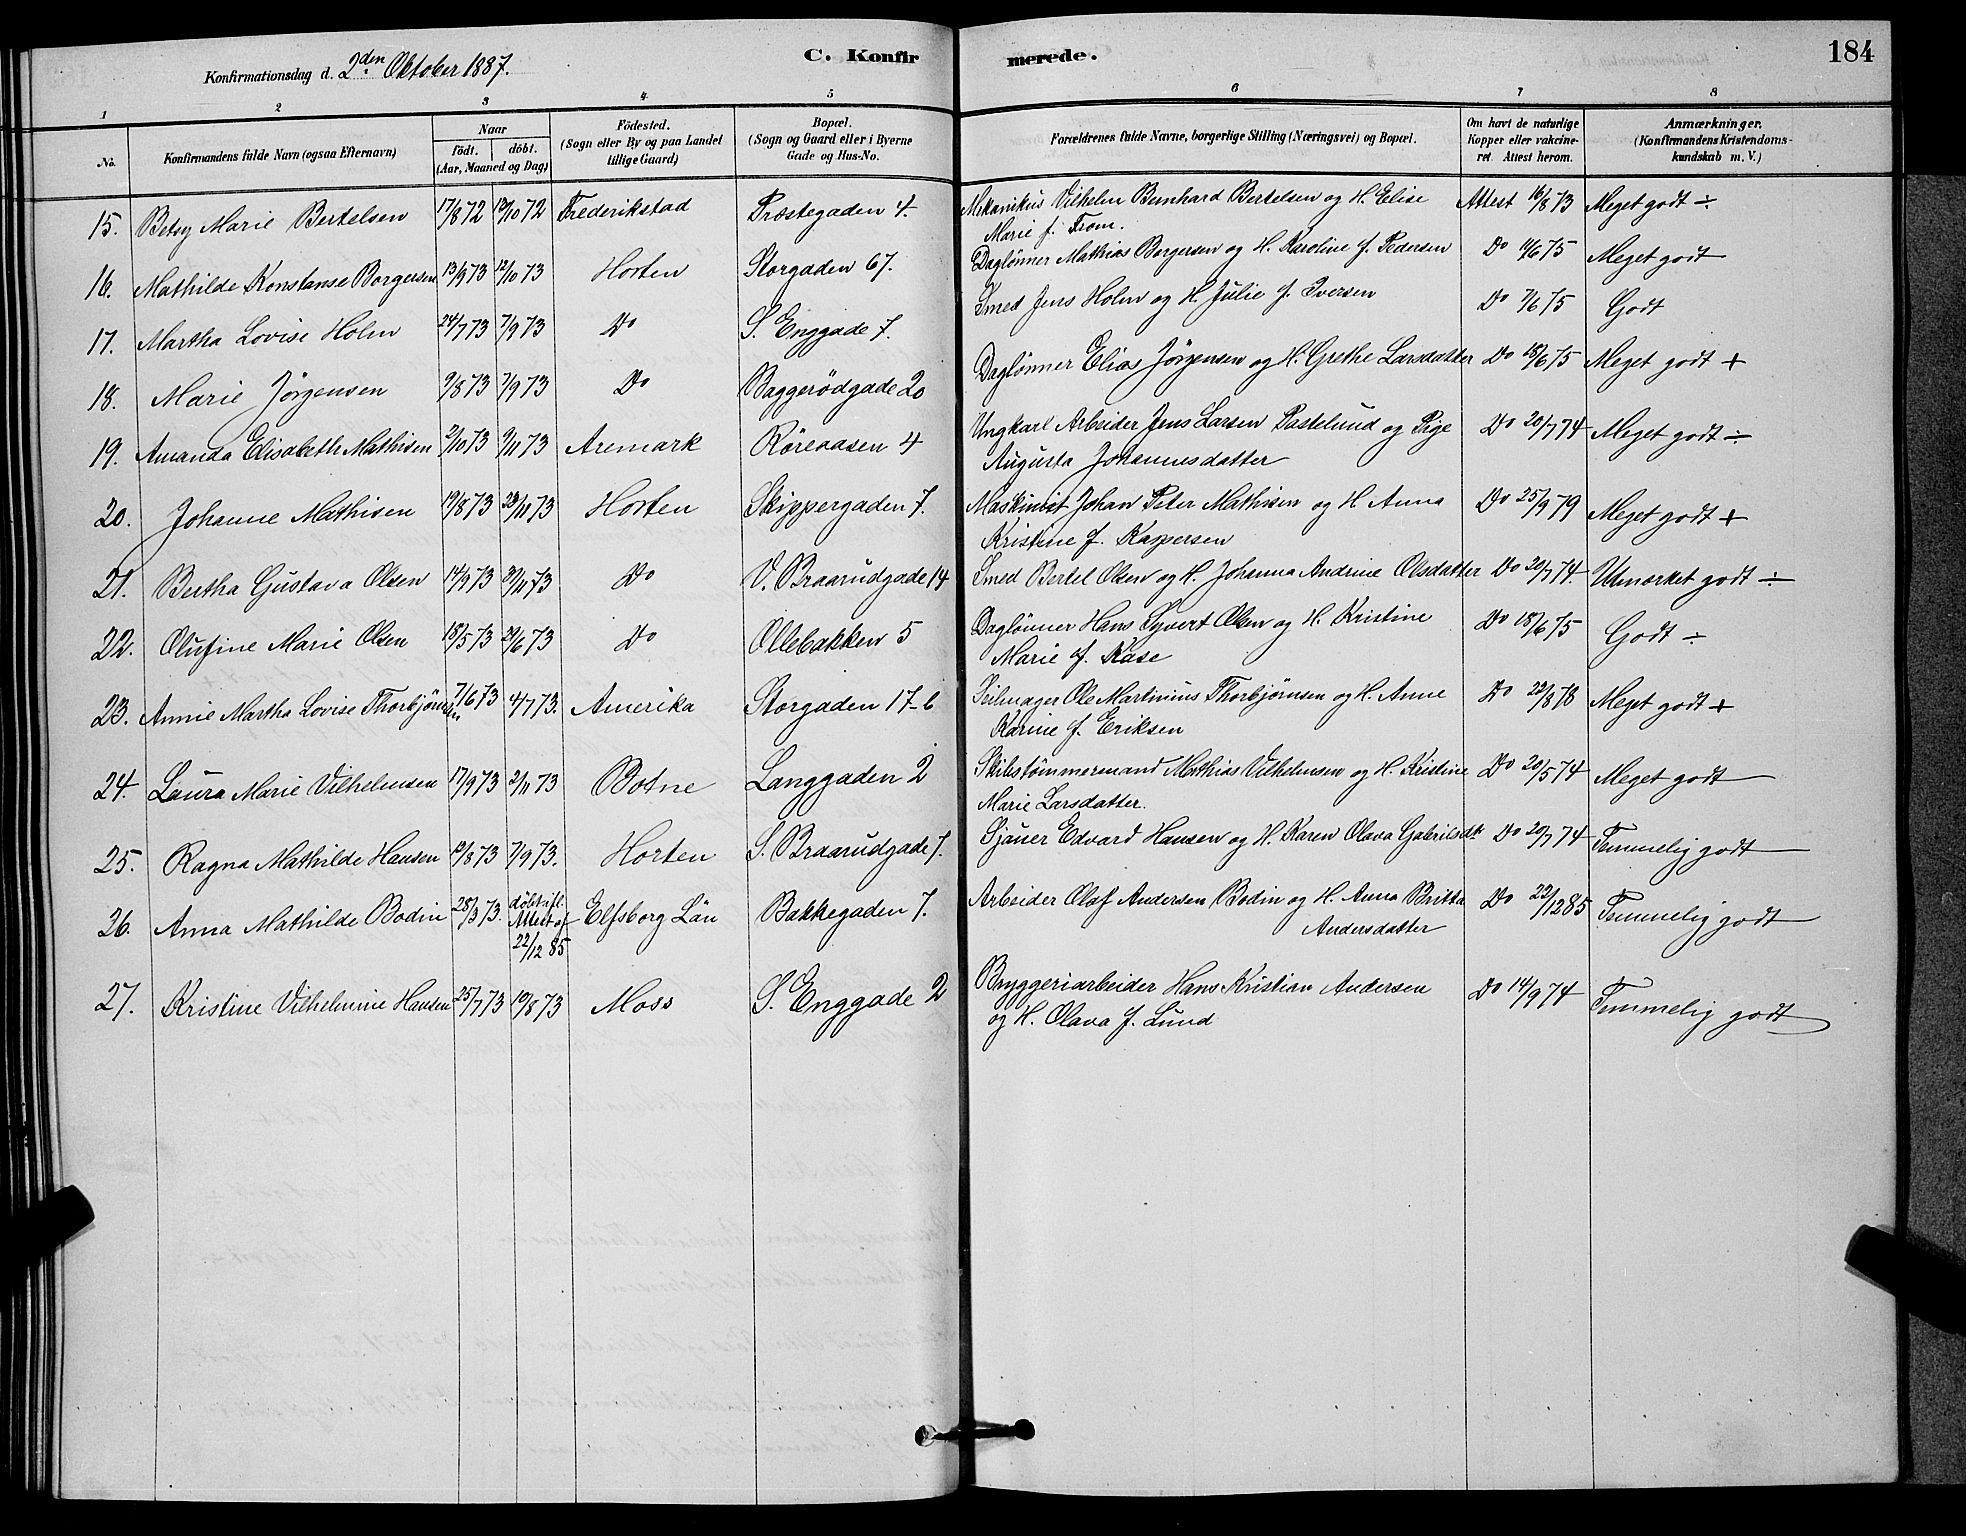 Konfirmationsdag d. 2den Oktober 1887.
C. Konfirmerede.
184
1 2 3 4 5 6 7 8
No.
Konfirmandens fulde Navn (ogsaa Efternavn)
Naar
født. døbt.
(Aar, Maaned og Dag)
Födested.
(Sogn eller By og paa Landet
tillige Gaard)
Bopæl.
(Sogn og Gaard eller i Byerne
Gade og Hus-No.
Forældrenes fulde Navne, borgerlige Stilling (Næringsvei) og Bopæl.
Om havt de naturlige
Kopper eller vakcine-
ret. Attest herom.
Anmærkninger.
(Konfirmandens Kristendoms-
kundskab m. V.)
15. Betsy Marie Bertelsen 17/8 72 13/10 72 Frederikstad Præstegaden 4. Mekanikus Vilhelm Bernhard Bertelsen og H. Elise Attest 16/8 73 Meget godt ÷
Marie f. From.
16. Mathilde Konstanse Borgersen 13/9 73 12/10 73 Horten Storgaden 67. Daglönner Mathias Borgersen og H. Karoline f. Pedersen Do 11/6 75 Meget godt
17. Martha Lovise Holm 24/7 73 7/9 73 Do S. Enggade 7. Smed Jens Holm og H. Julie f. Iversen Do 7/6 75 Godt
18. Marie Jörgensen 9/8 73 7/9 73 Do Baggerödgade 20 Daglönner Elias Jörgensen og H. Grethe Larsdatter Do 18/6 75 Meget godt +
19. Amanda Elisabeth Mathisen 2/10 73 9/11 73 Aremark Röreaasen 4 Ungkarl Arbeider Jens Larsen Pastelund og Pige Do 20/7 74 Meget godt ÷
Augusta Johannesdatter
20. Johanne Mathisen 19/8 73 23/11 73 Horten Skippergaden 7. Maskinist Johan Peter Mathisen og H Anna Do 25/9 79 Meget godt +
Kristine f. Kaspersen
21. Bertha Gustava Olsen 14/9 73 30/11 73 Do V. Braarudgade 14 Smed Bertel Olsen og H. Johanna Andrine Olsdatter Do 20/7 74. Utmærket godt ÷
22. Olufine Marie Olsen 18/5 73 29/6 73 Do Ollebakken 5 Daglönner Hans Syvert Olsen og H. Kristine Do 18/6 75 Godt ÷
Marie f. Kase
23. Annie Martha Lovise Thorbjörnsen 7/6 73 4/7 73. Amerika Storgaden 17-b Seilmager Ole Martinius Thorbjörnsen og H. Anne Do 22/8 78 Meget godt +
Karine f. Eriksen
24. Laura Marie Vilhelmsen 17/9 73 2/11 73 Botne Langgaden 2 Skibstömmermand Mathias Vilhelmsen og H. Kristine Do 20/5 74 Meget godt
Marie Larsdatter.
25. Ragna Mathilde Hansen 12/8 73 7/9 73. Horten S. Braarudgade 7. Sjauer Edvard Hansen og H. Karen Olava Gabrielsdt. Do 20/7 74 Temmelig godt
26. Anna Mathilde Bodin 28/3 73. döbt ifl. Elfsborg Län Bakkegaden 7. Arbeider Olaf Andersen Bodin og H. Anna Britta Do 22/12 85 Temmelig godt
Attest af
22/12 85
Andersdatter
27. Kristine Vilhelmine Hansen 25/7 73 19/8 73 Moss S. Enggade 2 Bryggeriarbeider Hans Kristian Andersen Do 14/9 74 Temmelig godt
og H. Olava f. Lund